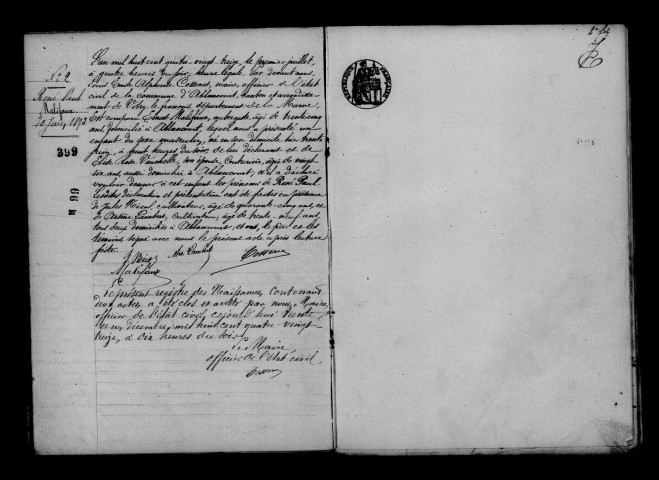 N° 2
René Paul
Malifaux
30 Juin 1893
399
M 99
L'an mil huit cent quatre-vingt-treize, le premier juillet,
à quatre heures du soir, heure légale, par devant nous,
Louis Alphonse Cosson, maire, officier de l'état
civil de la commune d'Ablancourt, canton et arrondisse-
ment de Vitry-le-françois, département de la Marne,
Est comparu Ernest Malifaux, âgé de trente-cinq
ans, domicilié à Ablancourt, lequel nous a présenté un
enfant du sexe masculin, né en son domicile hier trente
juin, à quatre heures du soir, de lui déclarant et de
Rose son épouse, couturière, âgée de vingt
six ans, aussi domiciliée à Ablancourt; et il a déclaré
vouloir donner à cet enfant les prénoms de René Paul
Lesdites déclaration et présentation ont été faites en présence
de Jules cultivateur, âgé de quarante-cinq ans, et
de Lambert, cultivateur, âgé de trente-neuf ans,
tous deux domiciliés à Ablancourt; et ont, le père et les
témoins signé avec nous le présent acte après lecture
faite.
Malifaux
Le présent registre des Naissances contenant
deux actes, a été clos et arrêté par nous, Maire,
officier de l'état civil, cejourd'hui trente
et un décembre, mil huit cent quatre-vingt-
treize, à dix heures du soir.
Le Maire,
officier de l'état civil,